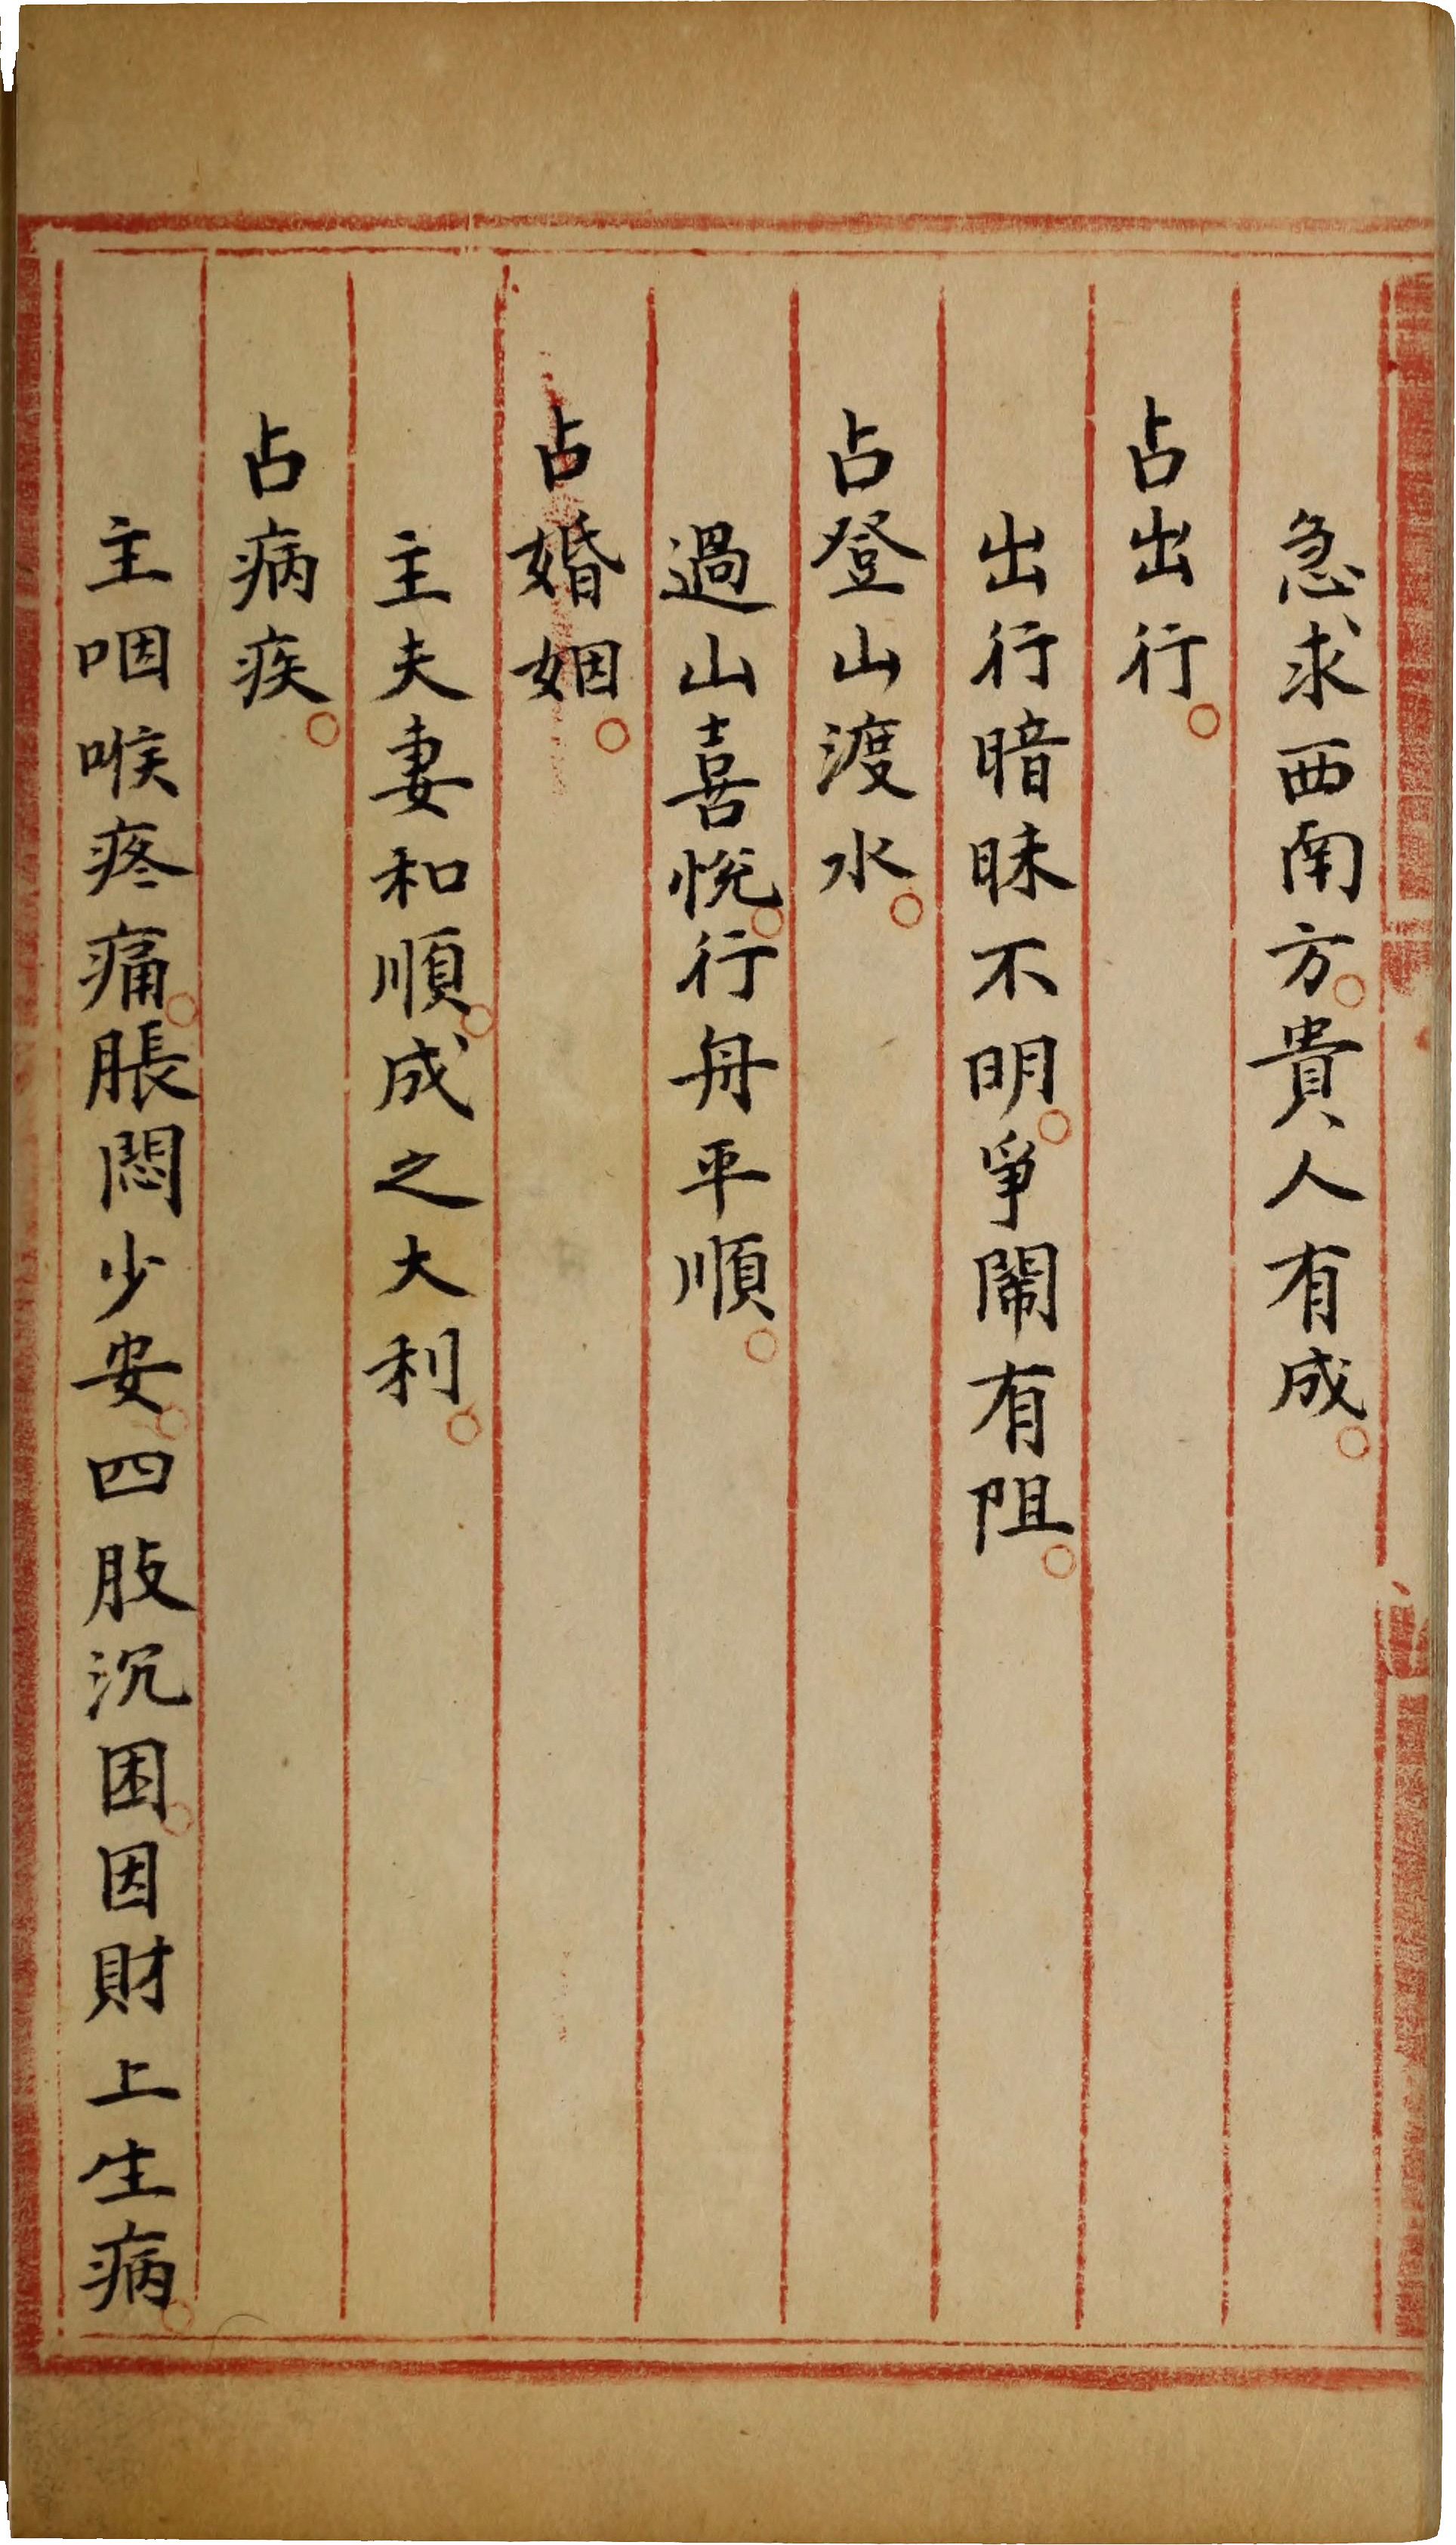 急求西南方。貴人有成。
占出行。
出行暗昧不明。爭鬧有阻。
占登山渡水。
過山喜悅。行舟平順。
占婚姻。
主夫妻和順。成之大利。
占病疾。
主咽喉疼痛。脹悶少安。四肢沉困。因財上生病。